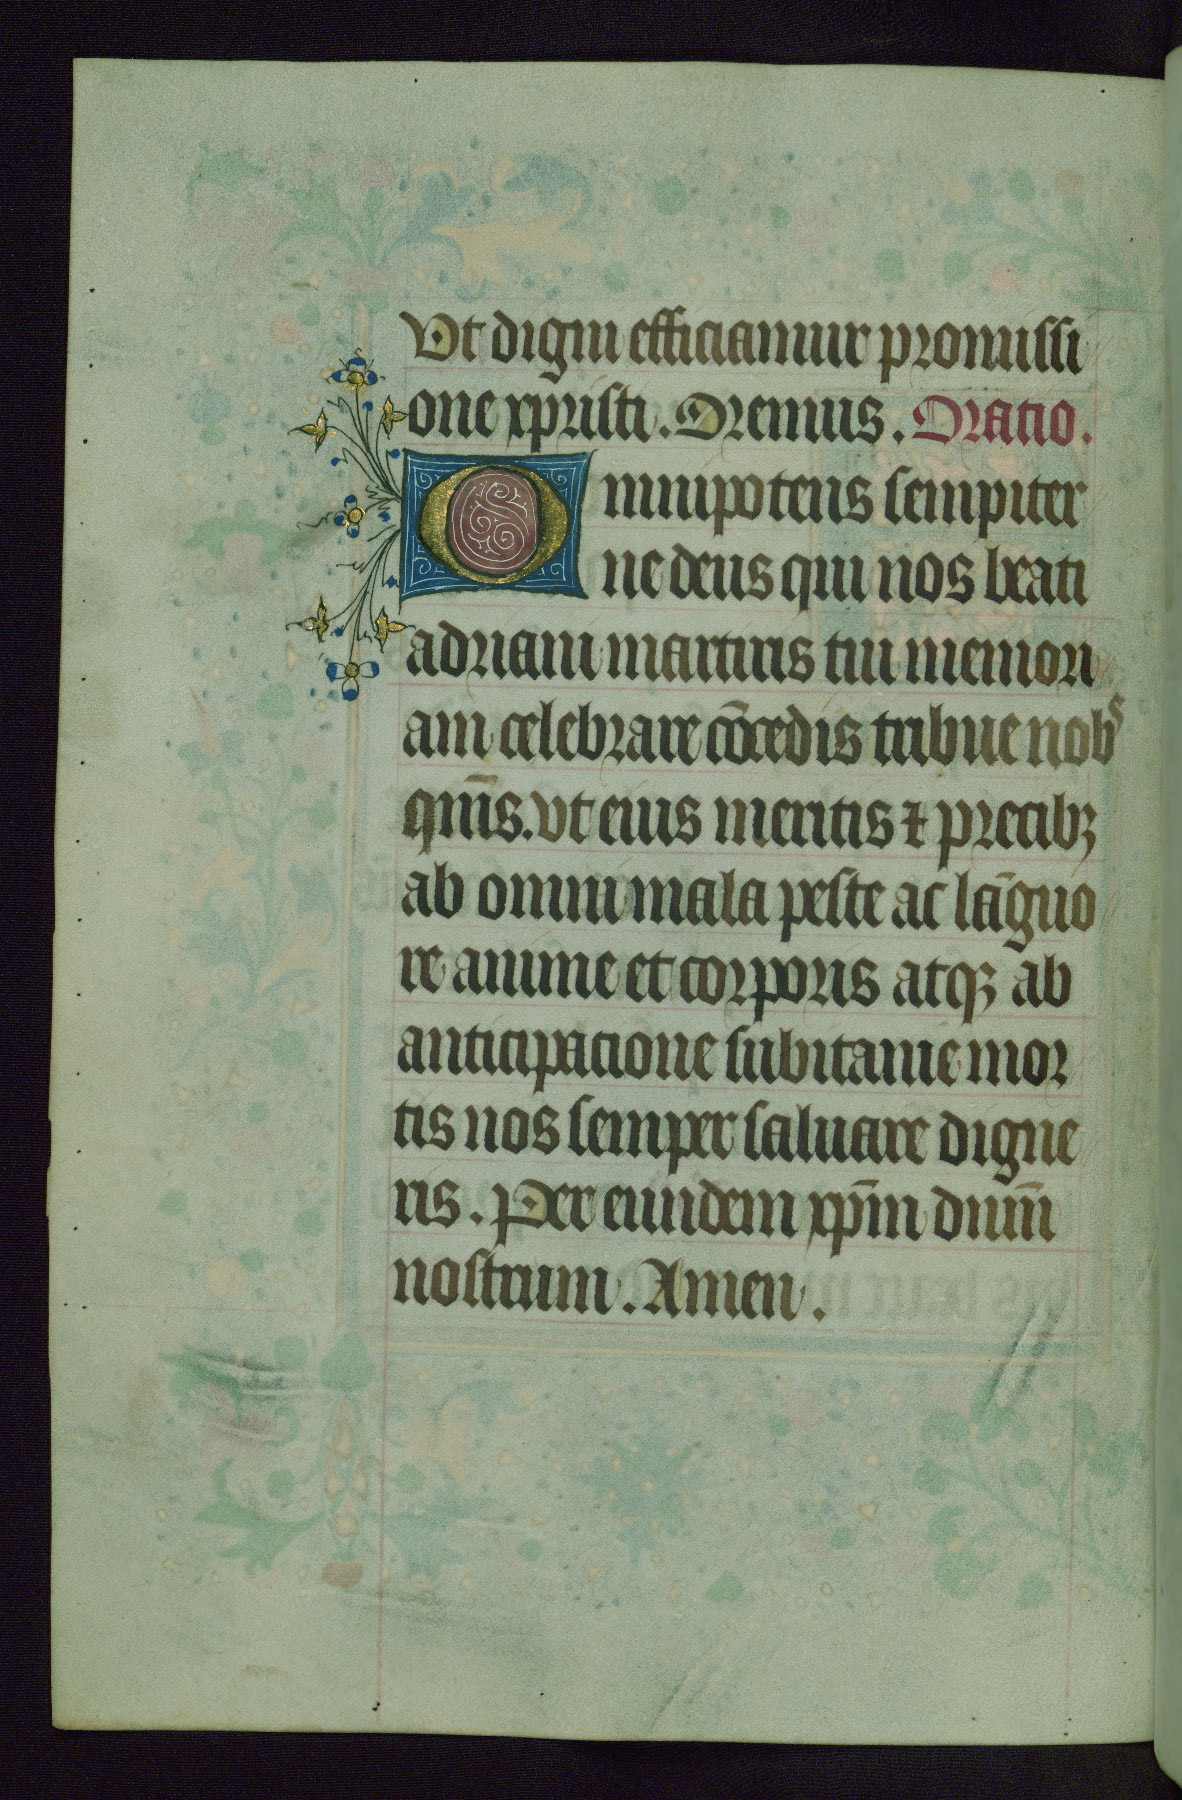 Ut digni efficiamur promissi
one xpristi. Oremus. Oratio.
Omnipotens sempiter
ne deus qui nos beati
adriani martiris tui memori
am celebrare cōcedis tribue nobˢ
qm̄s. ut eius meritis ⁊ precibꝫ
ab omni mala peste ac lāguo
re anime et corporis atqꝫ ab
anticipacione subitanie mor
tis nos semper saluare digne
ris. Per eundem xp̄m dnm̄
nostrum. Amen.